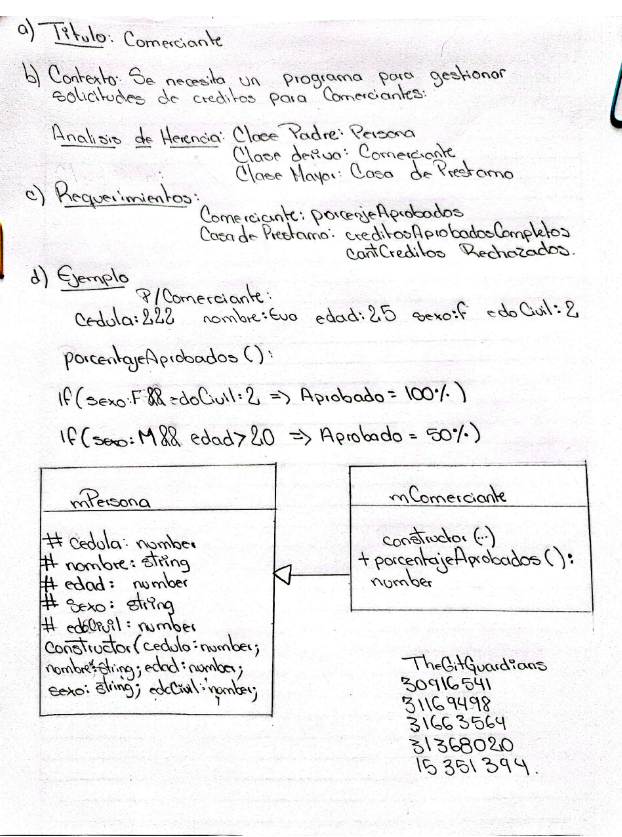 a) Titulo: Comerciante
b) Contexto: Se necesita un programa para gestionar
solicitudes de creditos para Comerciantes:
Analisis de Herencia: Clase Padre: Persona
Clase deriva: Comerciante
Clase Mayor: Casa de Prestamo
c) Requerimientos:
Comerciante: porcenjeAprobados
Casa de Prestamo: creditosAprobadosCompletos
cantCreditos Rechazados.
d) Ejemplo
P/Comerciante:
Cedula: 222 nombre: Eva edad: 25 sexo: f edoCivil: 2
porcentajeAprobados ():
If (sexo: F && edoCivil: 2 => Aprobado = 100%)
If (sexo: M && edad > 20 => Aprobado = 50%)
mPersona
# Cedula: number
# nombre: string
# edad: number
# Sexo: string
# edoCivil: number
constructor (cedula: number;
nombre: string; edad: number;
sexo: string; edoCivil: number;
mComerciante
constructor (..)
+ porcentajeAprobados ():
number
TheGitGuardians
30916541
31169498
31663564
31368020
15351394.